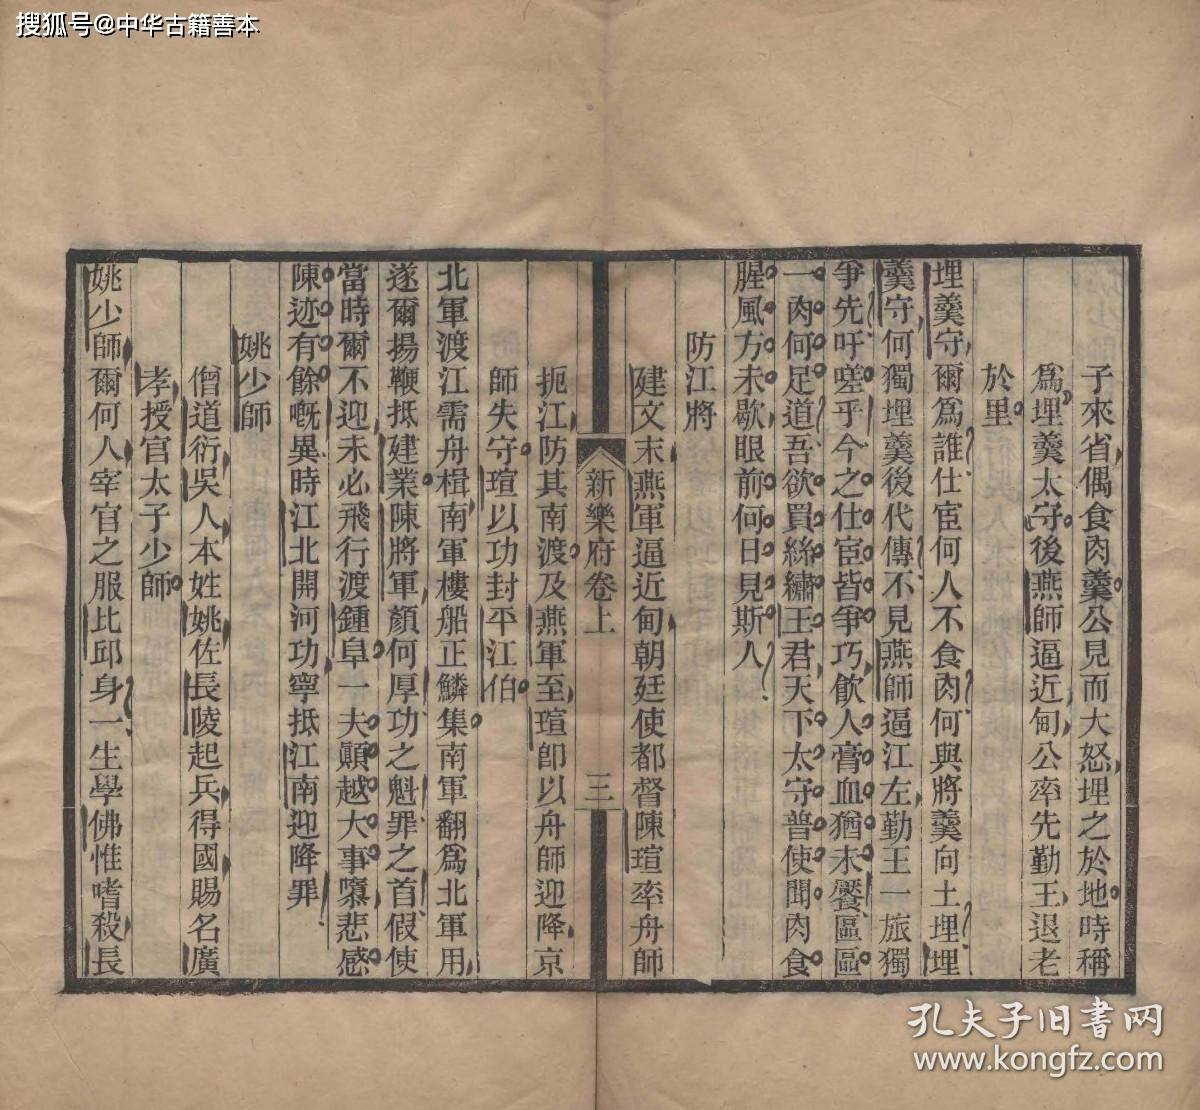 搜狐号@中华古籍善本
子來省偶食肉羹公見而大怒埋之於地時稱
爲埋羹太守後燕師逼近甸公率先勤王退老
於里
埋羹守爾爲誰仕宦何人不食肉何與將羹向土埋埋
羹守何獨埋羹後代傳不見燕師逼江左勤王一旅獨
爭先吁嗟乎今之仕宦皆爭巧飲人膏血猶未饜區區
一肉何足道吾欲買絲繡王君天下太守普使聞肉食
腥風方未歇眼前何日見斯人
防江將
建文末燕軍逼近甸朝廷使都督陳瑄率舟師
新樂府卷上
三
扼江防其南渡及燕軍至瑄卽以舟師迎降京
師失守瑄以功封平江伯
北軍渡江需舟楫南軍樓船正鱗集南軍翻爲北軍用
遂爾揚鞭抵建業陳將軍顏何厚功之魁罪之首假使
當時爾不迎未必飛行渡鍾阜一夫顛越大事隳悲感
陳迹有餘嘅異時江北開河功寧抵江南迎降罪
姚少師
僧道衍吳人本姓姚佐長陵起兵得國賜名廣
孝授官太子少師
姚少師爾何人宰官之服比邱身一生學佛惟嗜殺長
孔夫子旧书网
www.kongfz.com